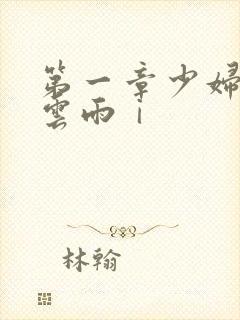 第一章少婦
雲雨｜
林翰